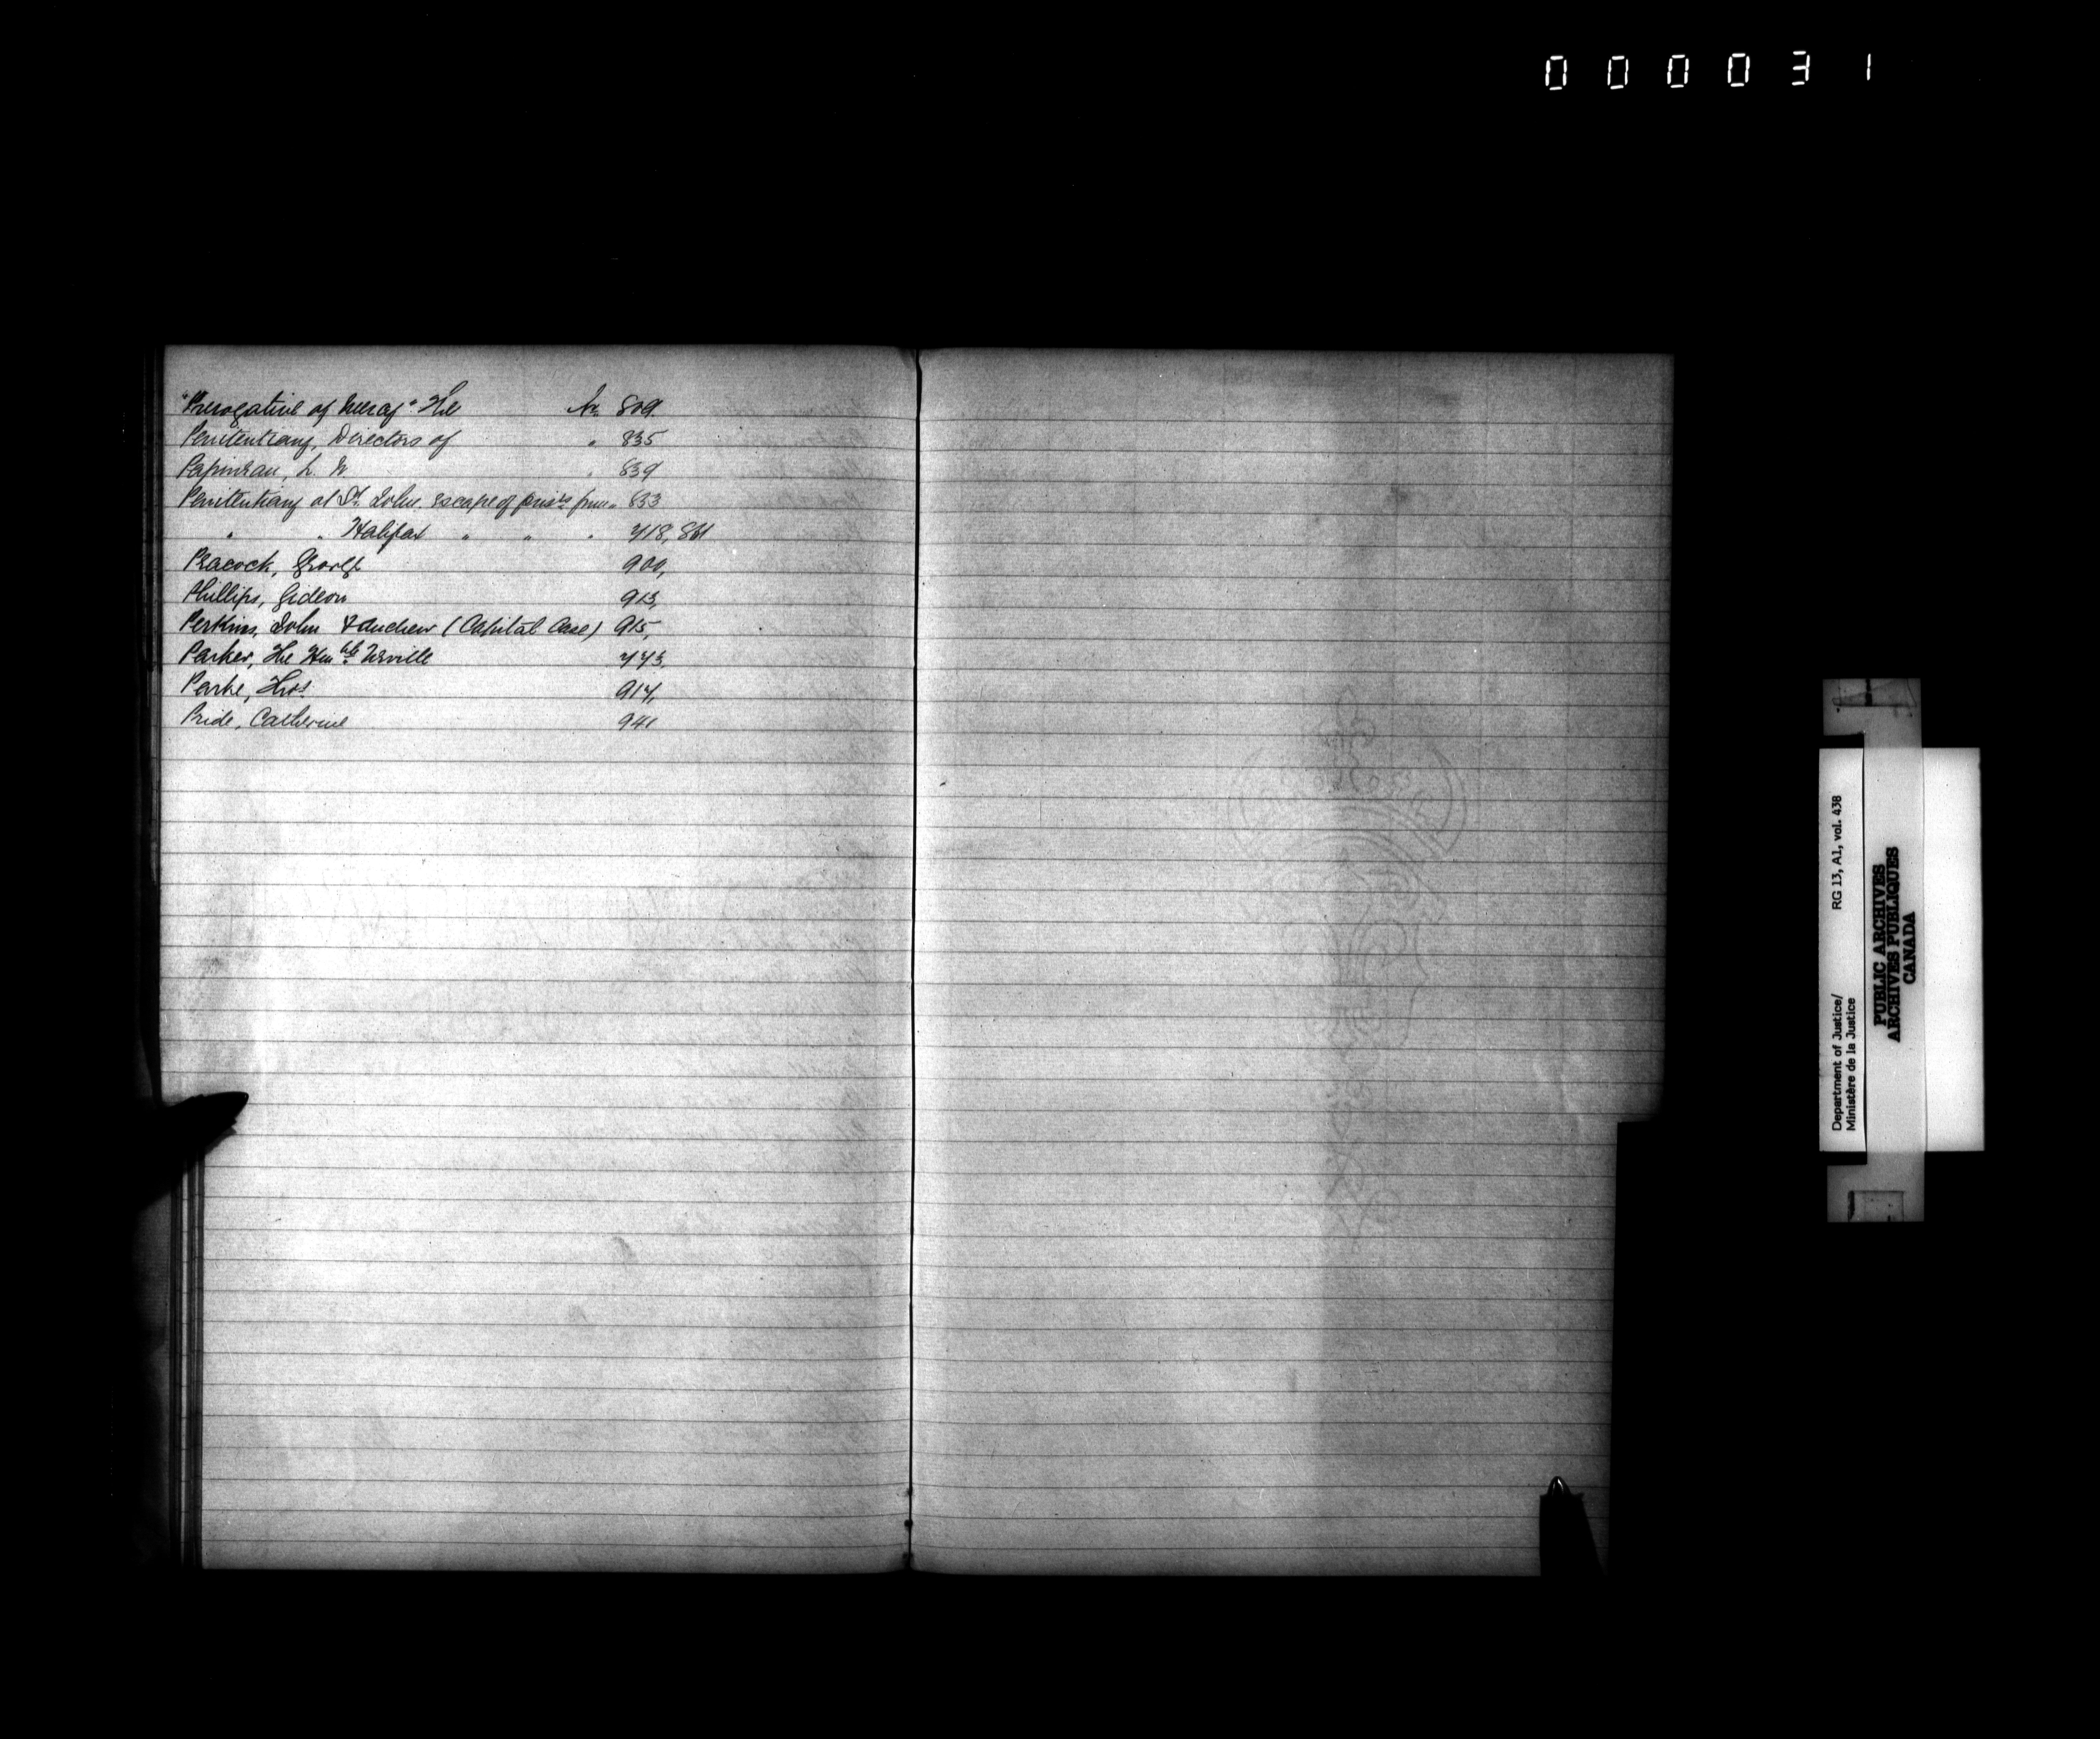 000031
"Prerogative of Mercy" The No. 809.
Penitentiary, Directors of " 835
Papineau, L. N " 839
Penitentiary at St. John. escape of pris'rs from " 833
" " Halifax " " " 418, 861
Peacock, George 900,
Phillips, Gideon 913,
Perkins, John & Andrew (Capital Case) 915,
Parker, The Honble Neville 443,
Parke, Thos. 914,
Pride, Catherine 941
Department of Justice/ RG 13, A1, vol. 438
Ministère de la Justice
PUBLIC ARCHIVES
ARCHIVES PUBLIQUES
CANADA